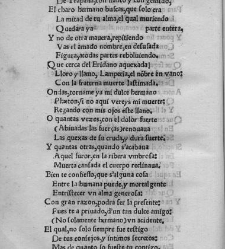 El charo hermano buscas, que solo era
La mitad de tu alma, el qual muriendo
Quedara ya parte entera,
Y no de otra manera, repitiendo
Vas el amado nombre, en desusada
Figura, a todas partes rebolviendo,
Que cerca del Eridano aquexada
Lloro y llamo, Lampecia, el nõbre en vano,
Con la fraterna muerte lastimada,
Ondas, tornáme ya mi dulce hermano
Phaeton, si no aqui vereys mi muerte
Regando con mis ojos este llano,
O quantas vezes, con el dolor fuerte
(Abiuadas las fuerças) renouaua
Las quexas de su cruda, y dura suerte,
Y quantas otras, quando s'acabaua
Aquel furor, en la ribera umbrosa
Muerta cansada el cuerpo reclinaua,
Bien te confiesso, que s'alguna cosa
Entre la humana puede, y mortal gente
Entristecer vn alma generosa,
Con gran razon, podra ser la presente
Pues te a priuado, d'vn tan dulce amigo
(No solamente hermano) vn acidente,
El qual, no solo siempre fue testigo
De tus consejos, y intimos secretos,